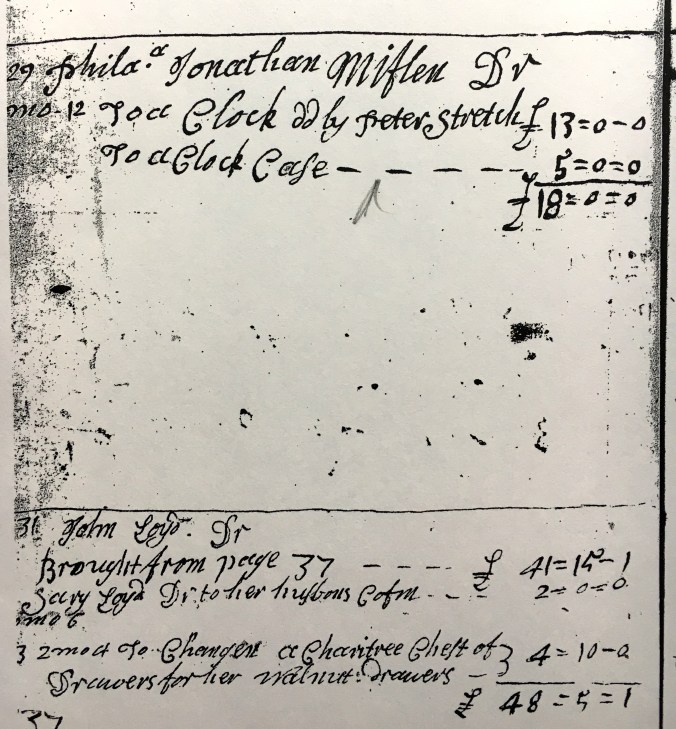 29 phila.a Jonathan Miflen Dr
mo 12 To a Clock dd by peter Stretch £ 13=0-0
To a Clock Case - - - - - 5=0=0
£ 18=0=0
31 John Loyd. Dr
Brought from page 37 - - - - £ 41=15-1
Dr. to her husbons Cofin - - - 2=0=0
mo 6
3 2 mo 4 To Changen a Charitree Chest of 4=10-0
Drawers for her walnut: drawers -
£ 48=5=1
37